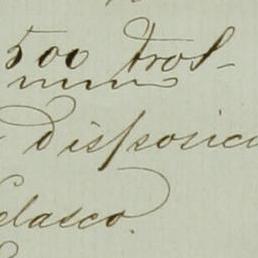 500 fros-
disposici
elasco.